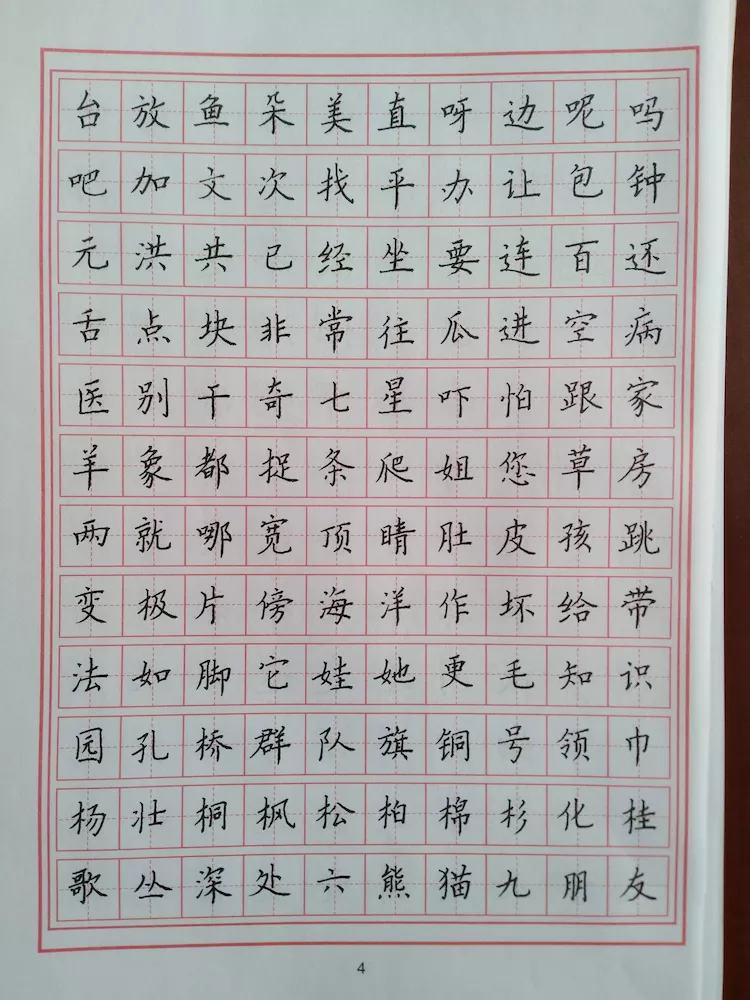 台放鱼朵美直呀边呢吗
吧加文次找平办让包钟
元洪共已经坐要连百还
舌点块非常往瓜进空病
医别干奇七星吓怕跟家
羊象都捉条爬姐您草房
两就哪宽顶晴肚皮孩跳
变极片傍海洋作坏给带
法如脚它娃她更毛知识
园孔桥群队旗铜号领巾
杨壮桐枫松柏棉杉化桂
歌丛深处六熊猫九朋友
4